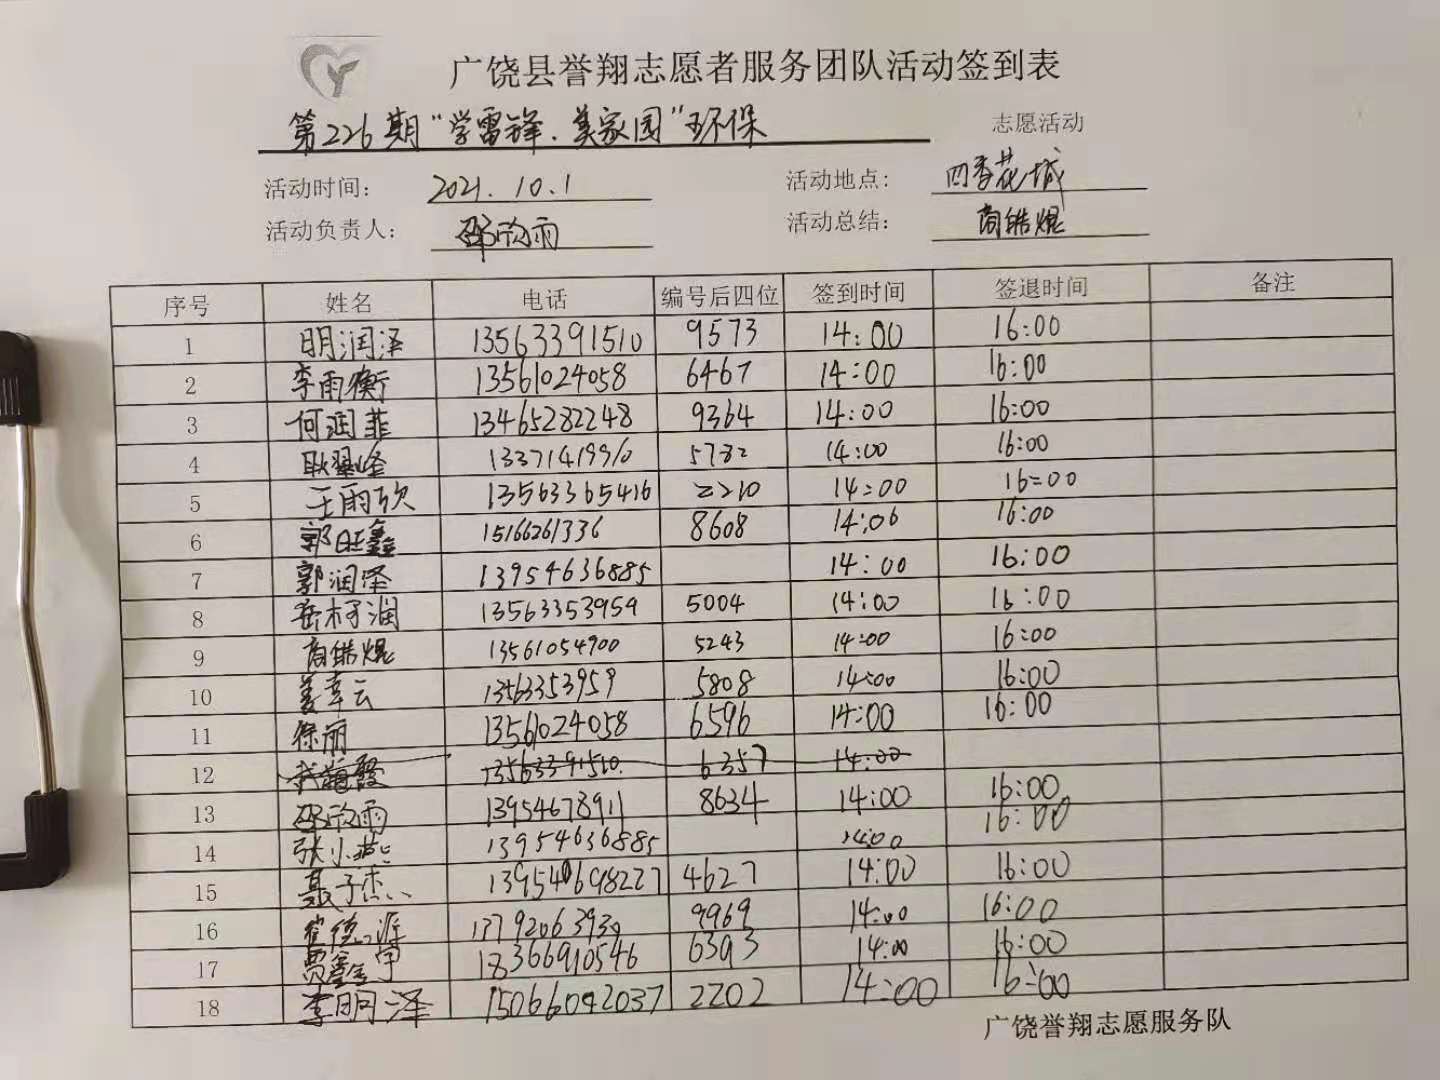 广饶县誉翔志愿者服务团队活动签到表
第226期“学雷锋.美家园”环保 志愿活动
活动时间: 2021.10.1 活动地点: 四季花城
活动负责人: 邵欣雨 活动总结: 商皓焜
序号 姓名 电话 编号后四位 签到时间 签退时间 备注
1 明润泽 13563391510 9573 14:00 16:00
2 李雨衡 13561024058 6467 14:00 16:00
3 何润菲 13465282248 9364 14:00 16:00
4 耿翌峰 13371419910 5782 14:00 16:00
5 王雨欣 13563365416 2210 14:00 16:00
6 郭旺鑫 15166261336 8608 14:00 16:00
7 郭润泽 13954636885 14:00 16:00
8 岳梓润 13563353959 5004 14:00 16:00
9 商皓焜 13561054900 5243 14:00 16:00
10 姜幸云 13563353959 5808 14:00 16:00
11 徐丽 13561024058 6596 14:00 16:00
12 13563391510 6357 14:00
13 邵欣雨 13954678911 8634 14:00 16:00
14 张小燕 13954636885 14:00 16:00
15 聂子杰 4627 14:00 16:00
16 崔德源 9969 14:00 16:00
17 贾鑫宇 18366910546 6393 14:00 16:00
18 李明泽 15066042037 2202 14:00 16:00
广饶誉翔志愿服务队